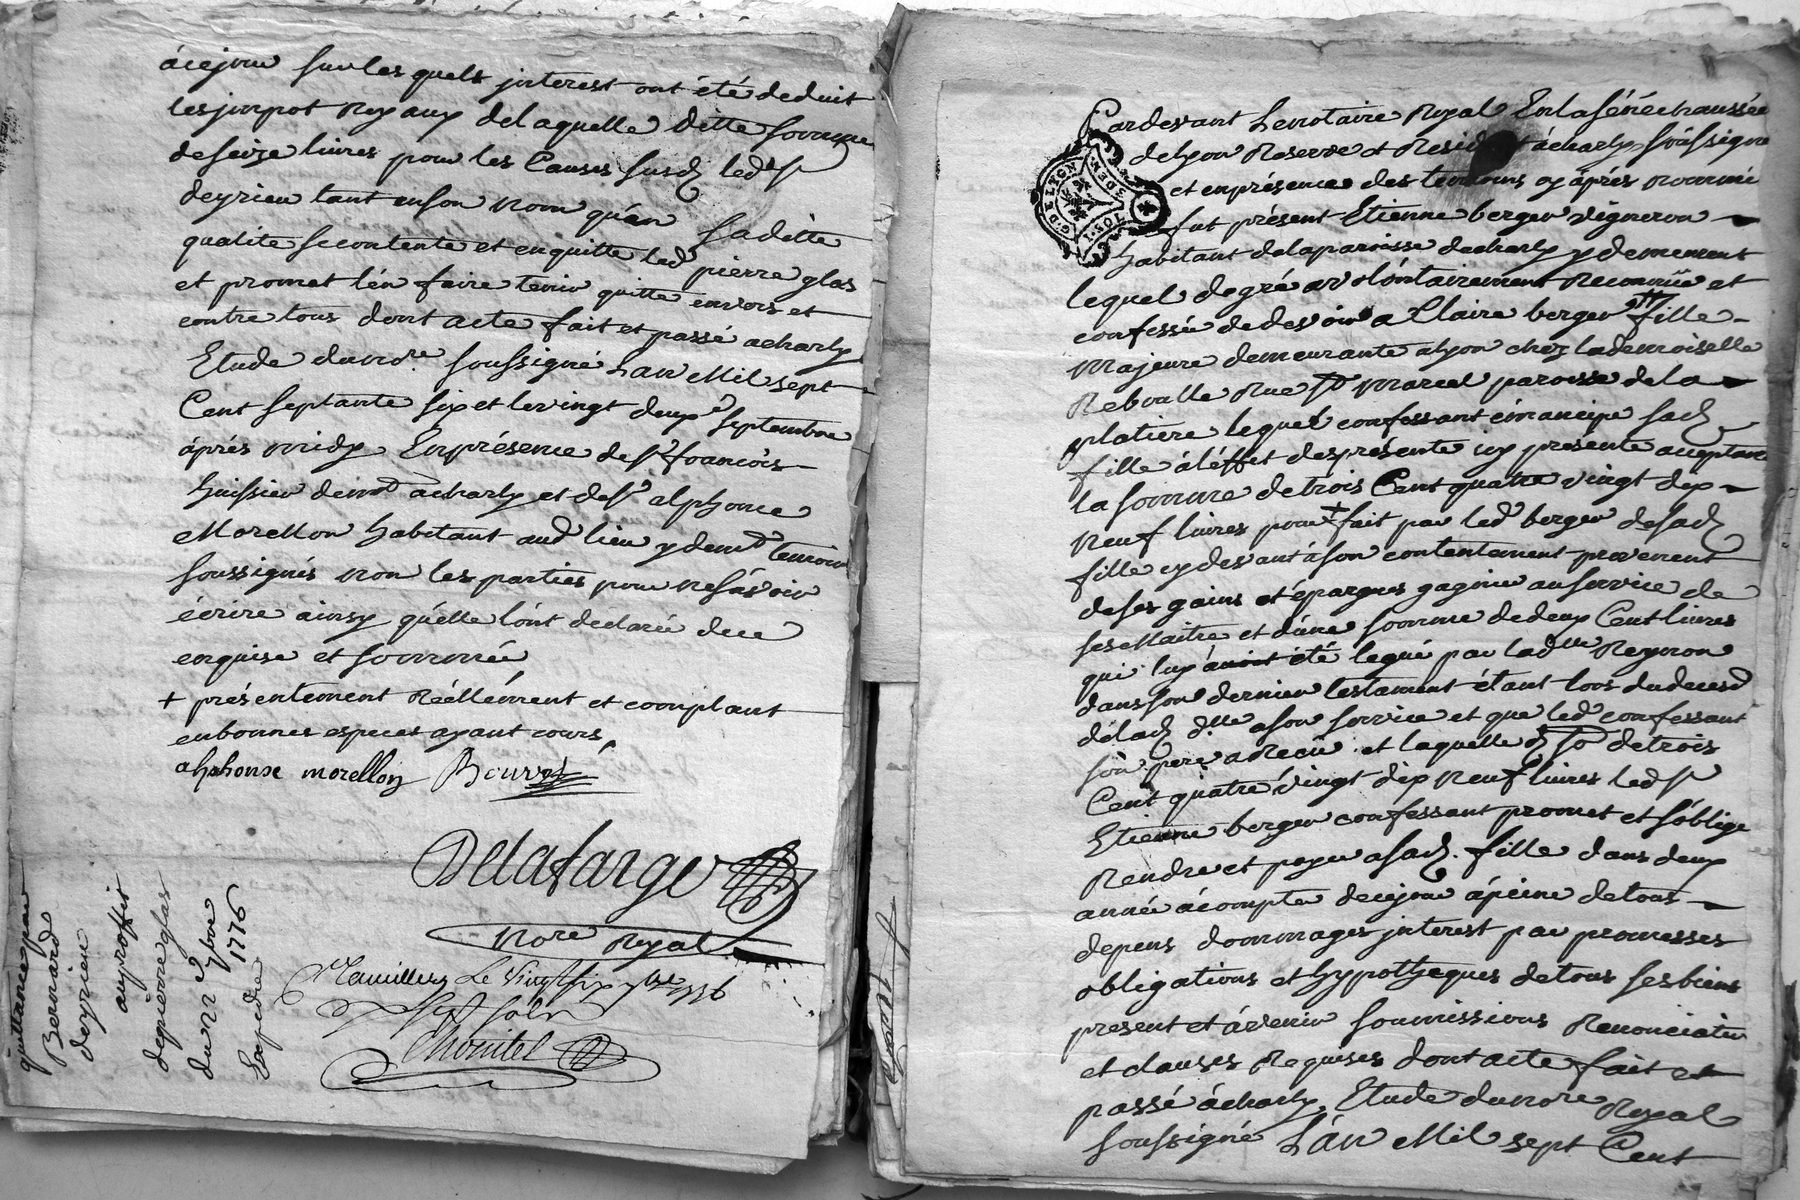 àcejour surlesquels jnterest ont été deduit
lesjmpot Royaux delaquelle ditte somme
deseize livres pour les Causes susd. led. sr
deyrieu tant enson nom qu'en saditte
qualite secontente et enquitte led. pierre glas
et promet l'en faire tenir quitte envers et
contre tous dont acte fait et passé acharly
Etude dunore. soussigné Lan Mil sept
Cent septante six et levingt deux septembre
àprés midy Enprésence de sr. francois
huissier demt. acharly et desr. alphonce
Morellon habitant aud. lieu y demt. temoins
soussignés non les parties pour nesavoir
écrire ainsy qu'elle l'ont declaré dece
enquise et sommée
+ présentement Réellement et comptant
enbonnes especes ayant cours,
alphonse morellon Bourros
Delafarge
Nore Royal
le vingt six 7bre 1776
sols
Chomitel
quittance par
Bernard
deyrieu
auproffit
depierre glas
du 22 7bre
1776
Expedie
Pardevant Lenotaire Royal Enlasénéchaussée
delyon Reservé et Resident àcharly soussigné
et enprésence des temoins cy àprés nommé
G. DE LYON
fut présent Etienne berger vigneron
habitant delaparoisse decharly y demeurent
lequel degré avolontairement Reconnüe et
confessé dedevoir a Claire berger fille
Majeure demeurante alyon chez lademoiselle
Reboulle Rue st. marcel paroisse dela
platiere lequel confessant émancipe sad.
fille àléffet desprésente icy presente acceptante
lasomme detrois Cent quatre vingt dix
neuf livres pour + fait par led. berger desad.
fille cydevant àson contentement provenent
deses gains et épargnes gagnée auservice de
sesMaitre et d'une somme dedeux Cent livres
qui luy àvoit été legué par lad. dlle Reynon
dansson dernier testament étant lors dudeces
delad. dlle ason service et que led. confessant
son pere aRecu et laquelle d. so. detrois
Cent quatre vingt dix neuf livres led. sr
Etienne berger confessant promet et s'oblige
Rendre et payer asad. fille dans deux
année àcompter decejour àpeine detous
depens dommages jnterest par promesses
obligations et hypotheques detous sesbiens
present et àvenir soumissions Renonciation
et clauses Requises dont acte fait et
passé àcharly Etude dunore Royal
soussigné L'an Mil sept Cent